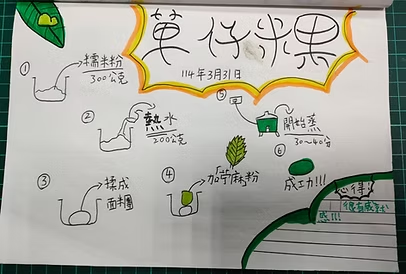 菓仔米果
114年3月31日
① 糯米粉
300公克
② 熱水
200公克
③ 揉成
面糰
④ 加苧麻粉
⑤ 開始蒸
30～40分
⑥ 成功!!!
心得
很有成就
感!!!